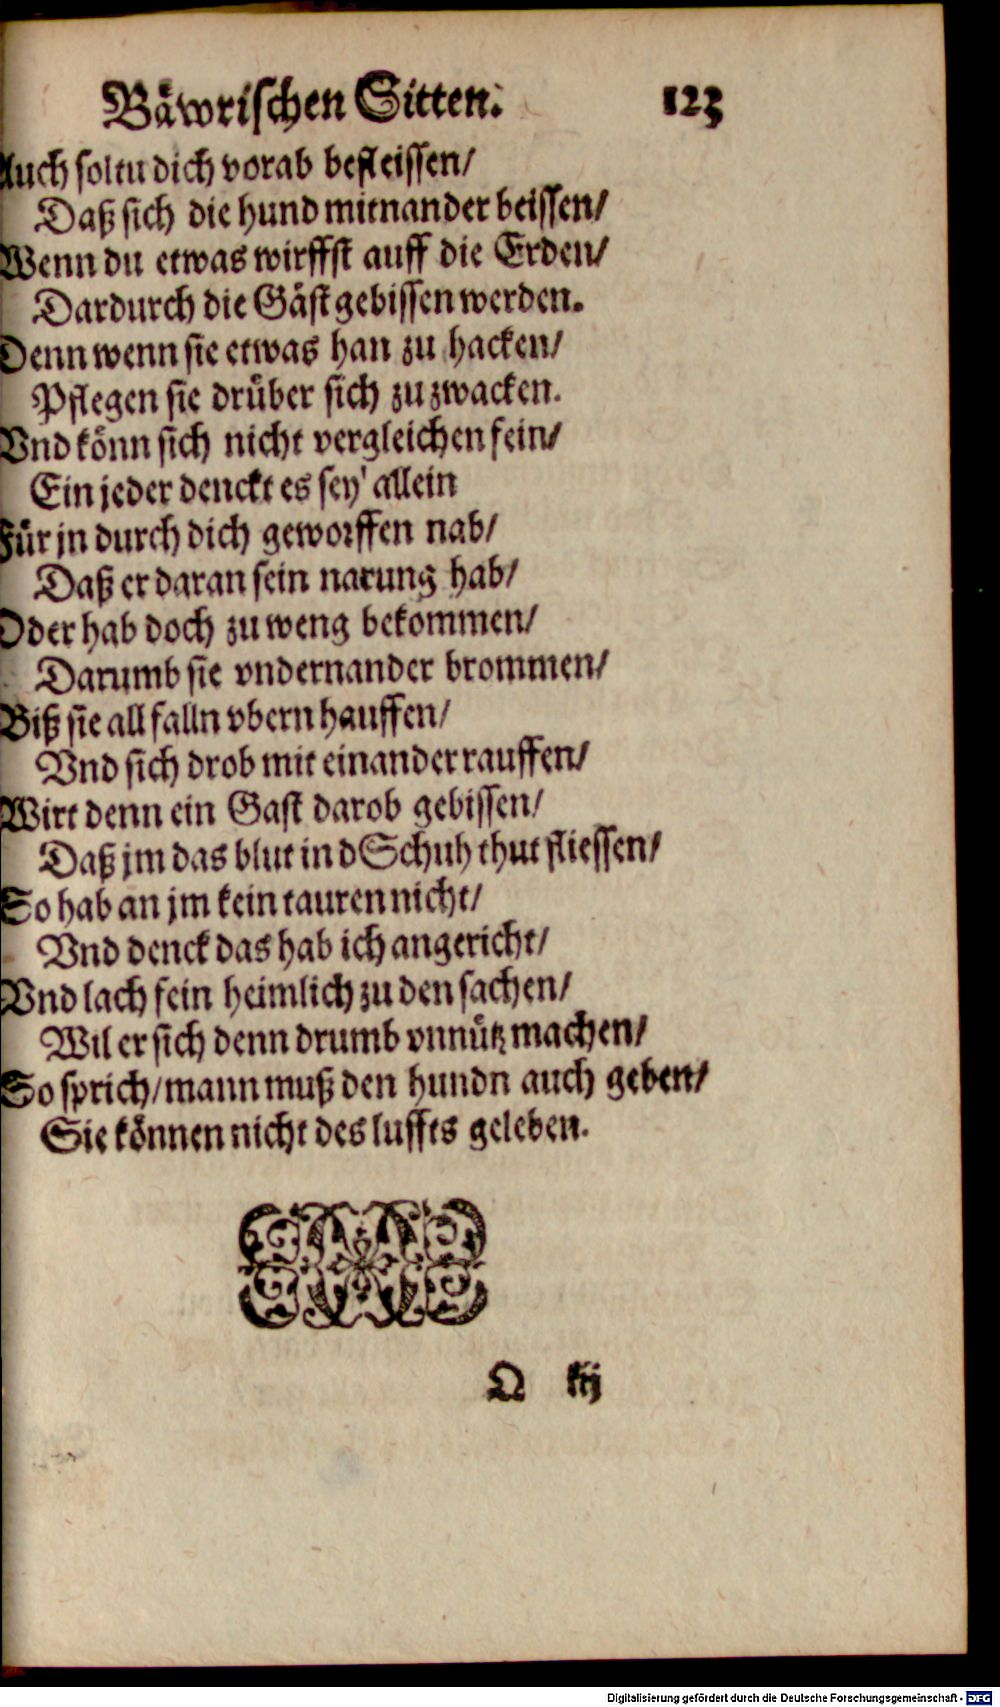 Bäwrischen Sitten. 123
Auch soltu dich vorab befleissen/
Daß sich die hund mitnander beissen/
Wenn du etwas wirffst auff die Erden/
Dardurch die Gäst gebissen werden.
Denn wenn sie etwas han zu hacken/
Pflegen sie drüber sich zu zwacken.
Vnd könn sich nicht vergleichen fein/
Ein jeder denckt es sey' allein
Für jn durch dich geworffen nab/
Daß er daran sein narung hab/
Oder hab doch zu weng bekommen/
Darumb sie vndernander brommen/
Biß sie all falln vbern hauffen/
Vnd sich drob mit einander rauffen/
Wirt denn ein Gast darob gebissen/
Daß jm das blut in d Schuh thut fliessen/
So hab an jm kein tauren nicht/
Vnd denck das hab ich angericht/
Vnd lach fein heimlich zu den sachen/
Wil er sich denn drumb vnnütz machen/
So sprich/ mann muß den hundn auch geben/
Sie können nicht des luffts geleben.
Q iij
Digitalisierung gefördert durch die Deutsche Forschungsgemeinschaft - DFG